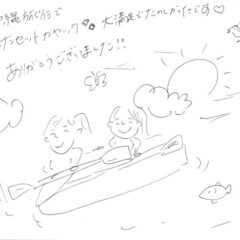 縄旅行で
サンセットカヤック 大満足でたのしかったです♡
ありがとうございました!!